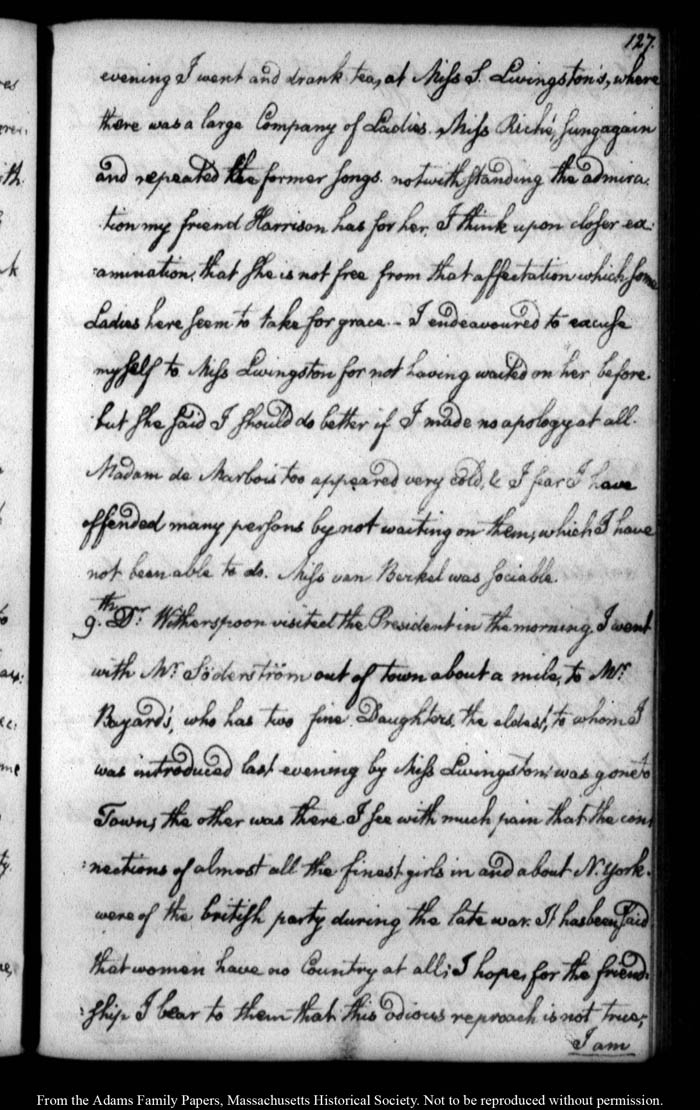 127.
evening I went and drank tea, at Miss S. Livingston's, where
there was a large Company of Ladies. Miss Riché, sung again
and repeated the former songs. notwithstanding the admira:
:tion my friend Harrison has for her, I think upon closer ex:
:amination, that she is not free from that affectation which some
Ladies here seem to take for grace.. I endeavoured to excuse
myself to Miss Livingston for not having waited on her before.
but she said I should do better if I made no apology at all.
Madam de Marbois too appeared very cold, & I fear I have
offended many persons by not waiting on them, which I have
not been able to do. Miss van Berkel was sociable.
9.th Dr. Witherspoon visited the President in the morning. I went
with Mr. Söderström out of town about a mile, to Mr.
Bayard's, who has two fine Daughters. the eldest, to whom I
was introduced last evening by Miss Livingston, was gone to
Town; the other was there. I see with much pain that the con:
:nections of almost all the finest girls in and about N. York.
were of the british party during the late war. It has been said
that women have no Country at all; I hope, for the friend:
:ship I bear to them that this odious reproach is not true;
I am
ith
me
ty.
From the Adams Family Papers, Massachusetts Historical Society. Not to be reproduced without permission.